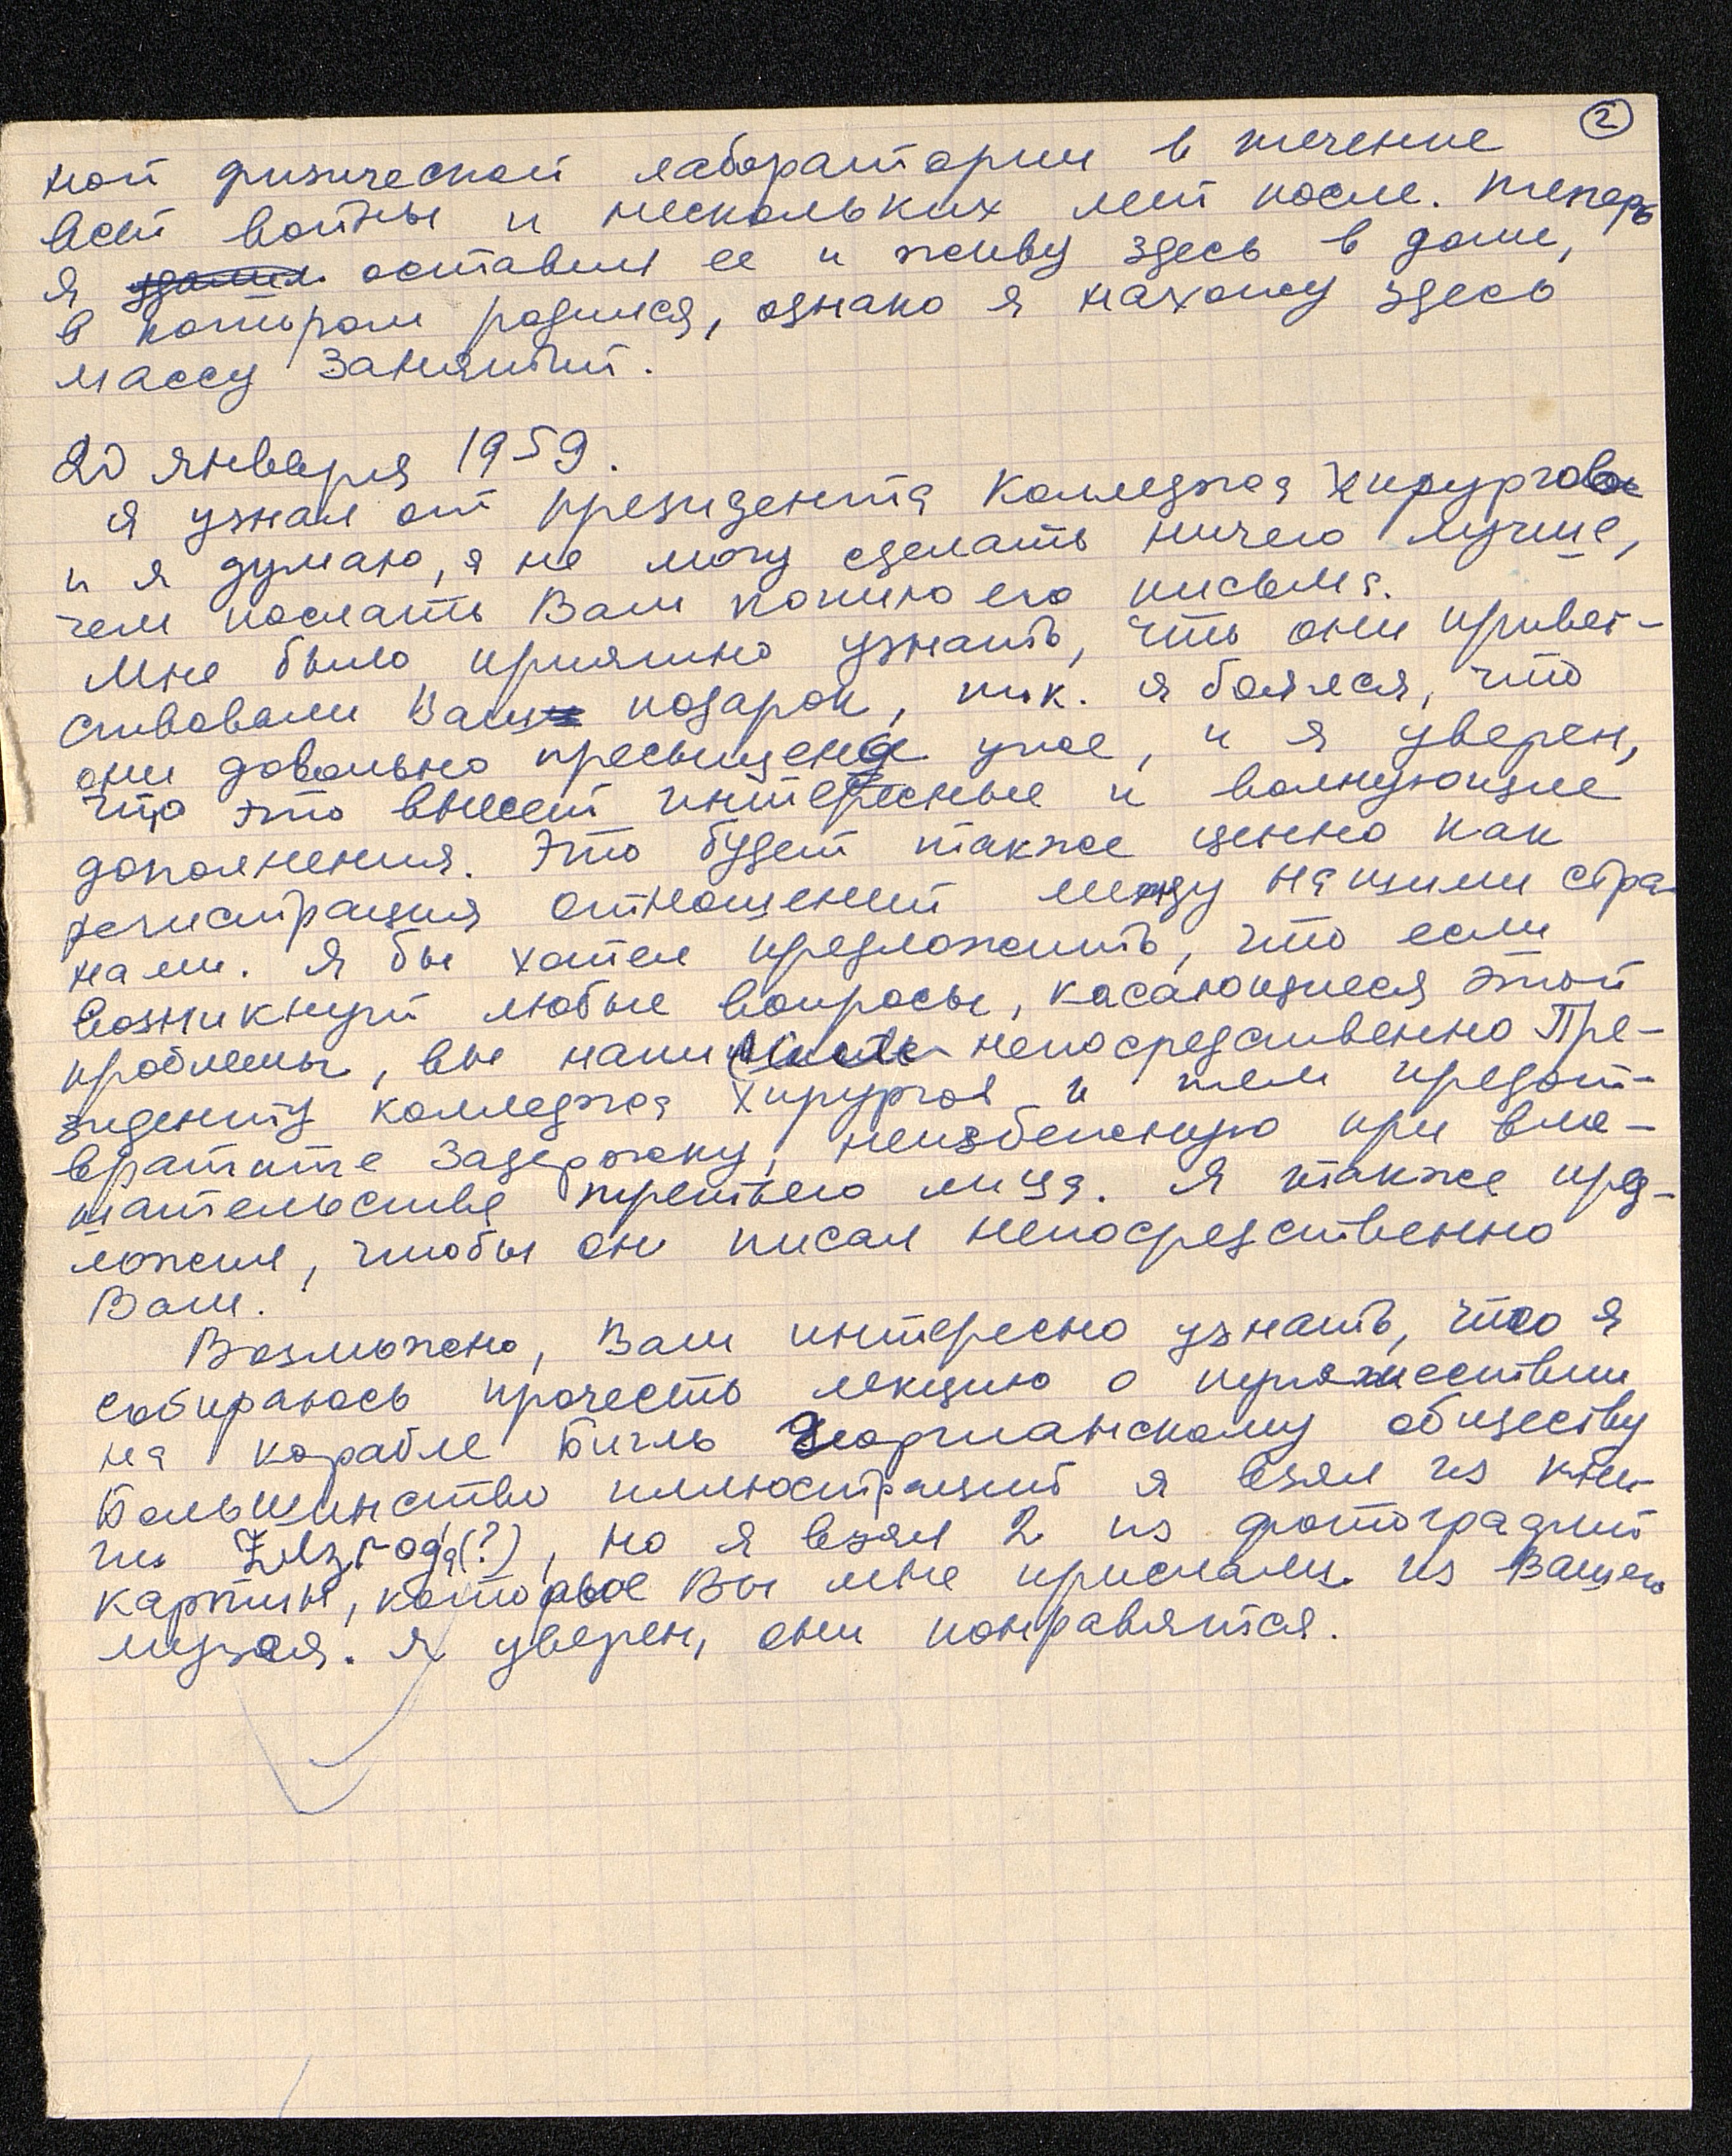 2
ной физической лаборатории в течение
всей войны и нескольких лет после. Теперь
я оставил ее и живу здесь в доме,
в котором родился, однако я нахожу здесь
массу занятий.
20 января 1959.
Я узнал от президента Колледжа Хирургов
и я думаю, я не могу сделать ничего лучше,
чем послать Вам копию его письма.
Мне было приятно узнать, что они привет-
ствовали Ваш подарок, т.к. я боялся, что
они довольно пресыщены уже, и я уверен,
что это внесет интересные и волнующие
дополнения. Это будет также ценно как
регистрация отношений между нашими стра-
нами. Я бы хотел предложить, что если
возникнут любые вопросы, касающиеся этой
проблемы, вы непосредственно Пре-
зиденту колледжа Хирургов и тем предот-
вратите задержку, неизбежную при вме-
шательстве третьего лица. Я также пред-
ложил, чтобы он писал непосредственно
Вам.
Возможно, Вам интересно узнать, что я
собираюсь прочесть лекцию о путешествии
на корабле Бигль обществу
Большинство иллюстраций я взял из кни-
ги (?), но я взял 2 из фотографий
картин, которые Вы мне прислали из Вашего
музея. Я уверен, они понравятся.